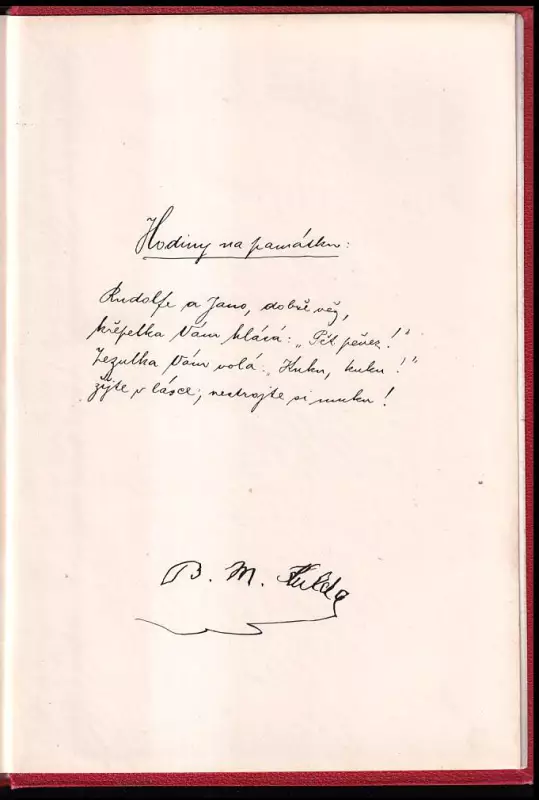 Hodiny na památku:
Rudolfe a Jano, dobře věz,
křepelka Vám hlásá: „Pět peněz!"
Žezulka Vám volá: „Kuku, kuku!"
žijte v lásce, nestrojte si muku!
B. M. Kulda